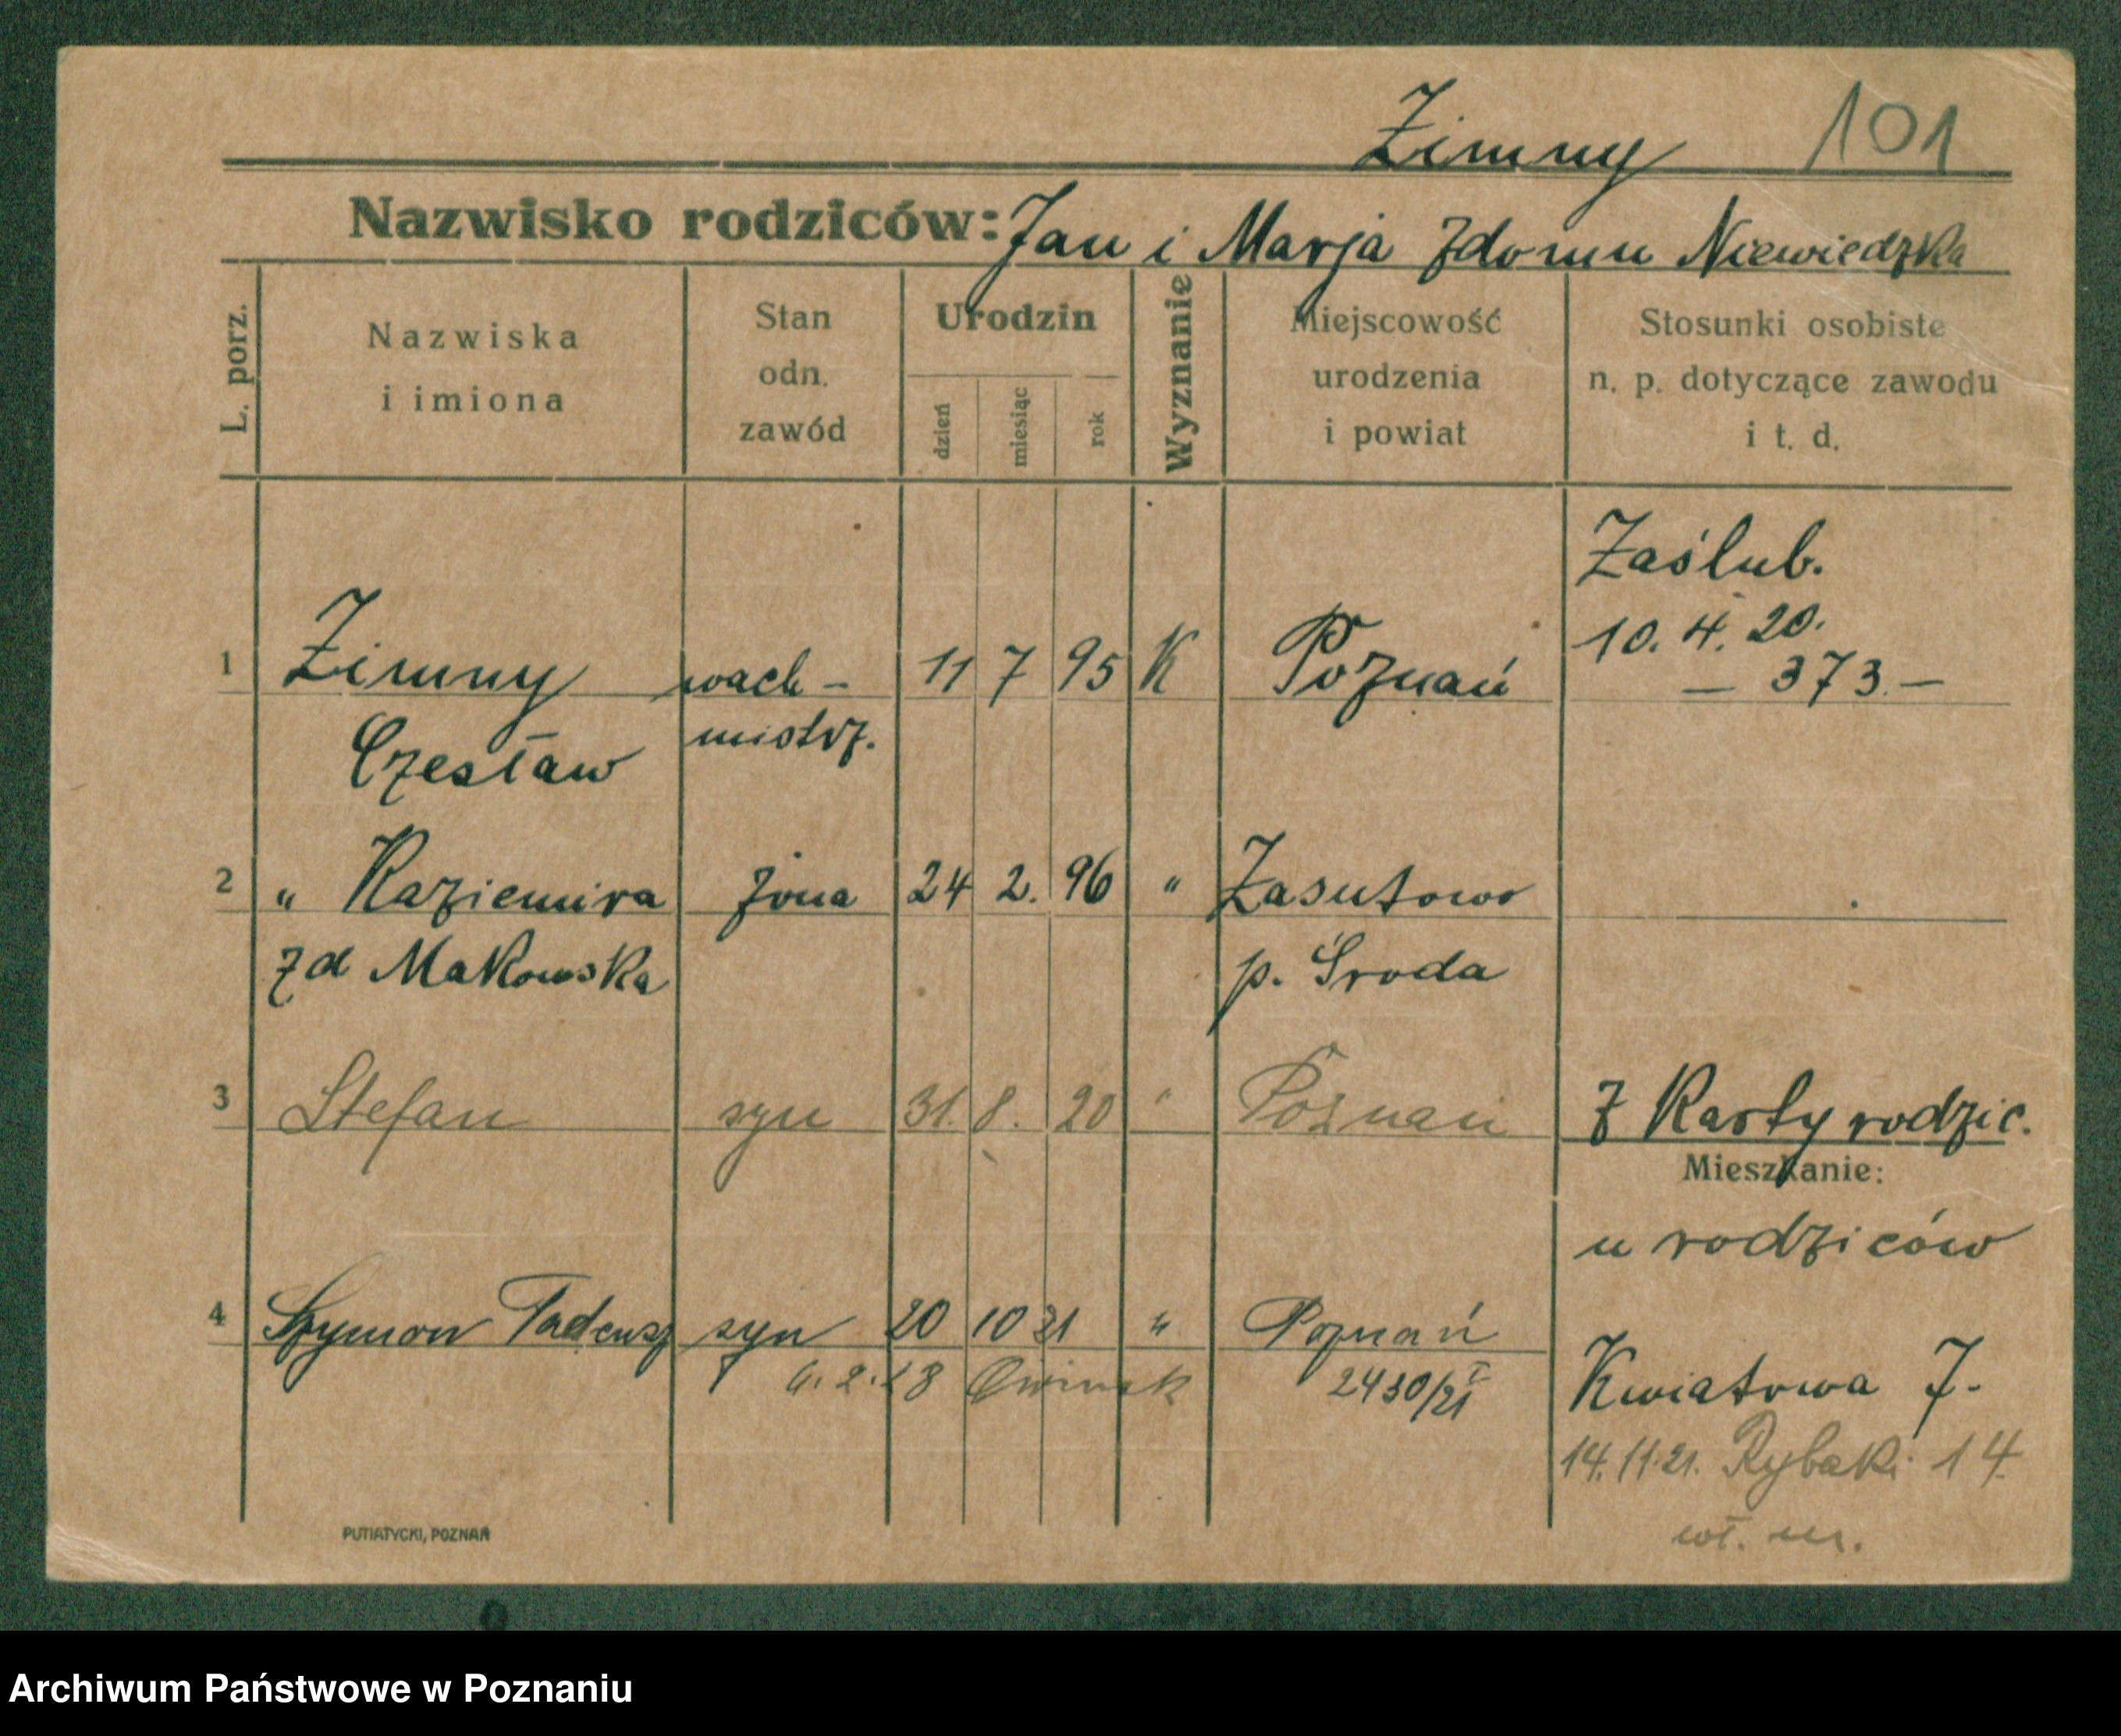 Zimny 101
Nazwisko rodziców: Jan i Marja zdomu Niewiedzka
L. porz.
Nazwiska
i imiona
Stan
odn.
zawód
Urodzin
dzień
miesiąc
rok
Wyznanie
Miejscowość
urodzenia
i powiat
Stosunki osobiste
n. p. dotyczące zawodu
i t. d.
Zaślub.
10. 4. 20.
— 373. —
1 Zimny wach- 11 7 95 K Poznań
Czesław mistrz.
2 „ Kaziemira żona 24 2. 96 „ Zasutowo
zd Makowska p. Środa
3 Stefan syn 31. 8. 20 „ Poznań Z Karty rodzic.
Mieszkanie:
u rodziców
4 Szymon Tadeusz syn 20 10 21 „ Poznań
2430/21
Kwiatowa 7.
14. 11. 21. Rybaki 14.
wł. m.
PUTIATYCKI, POZNAŃ
Archiwum Państwowe w Poznaniu